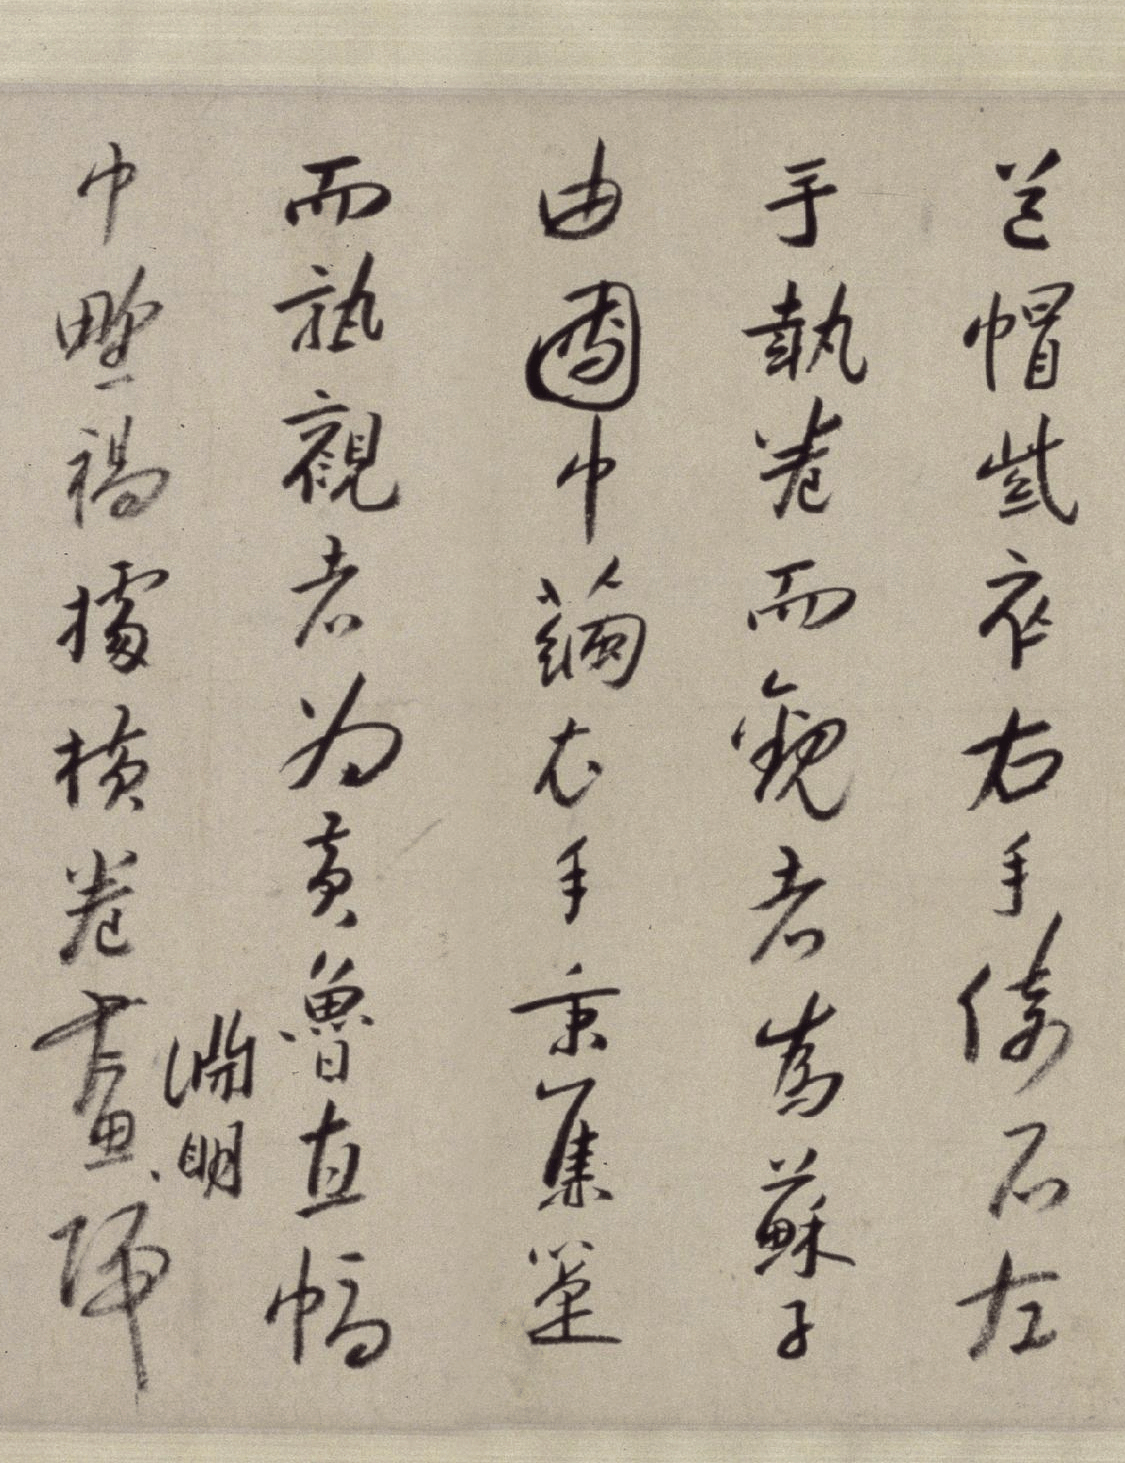 道帽紫衣右手倚石左
手執卷而觀者為蘇子
由團巾繭衣手秉蕉箑
而孰觀者為黃魯直幅
巾野褐據橫卷畫淵明歸